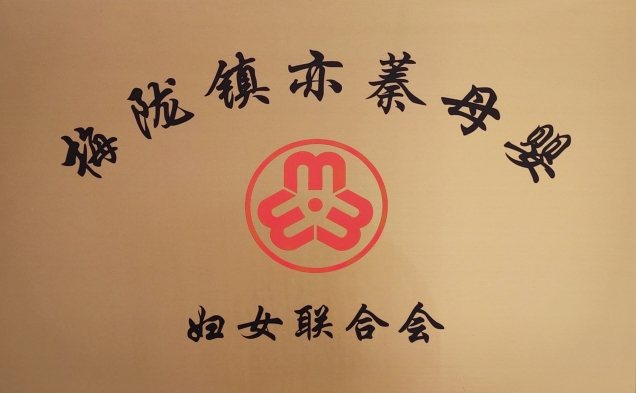 梅陇镇亦蓁母婴
妇女联合会